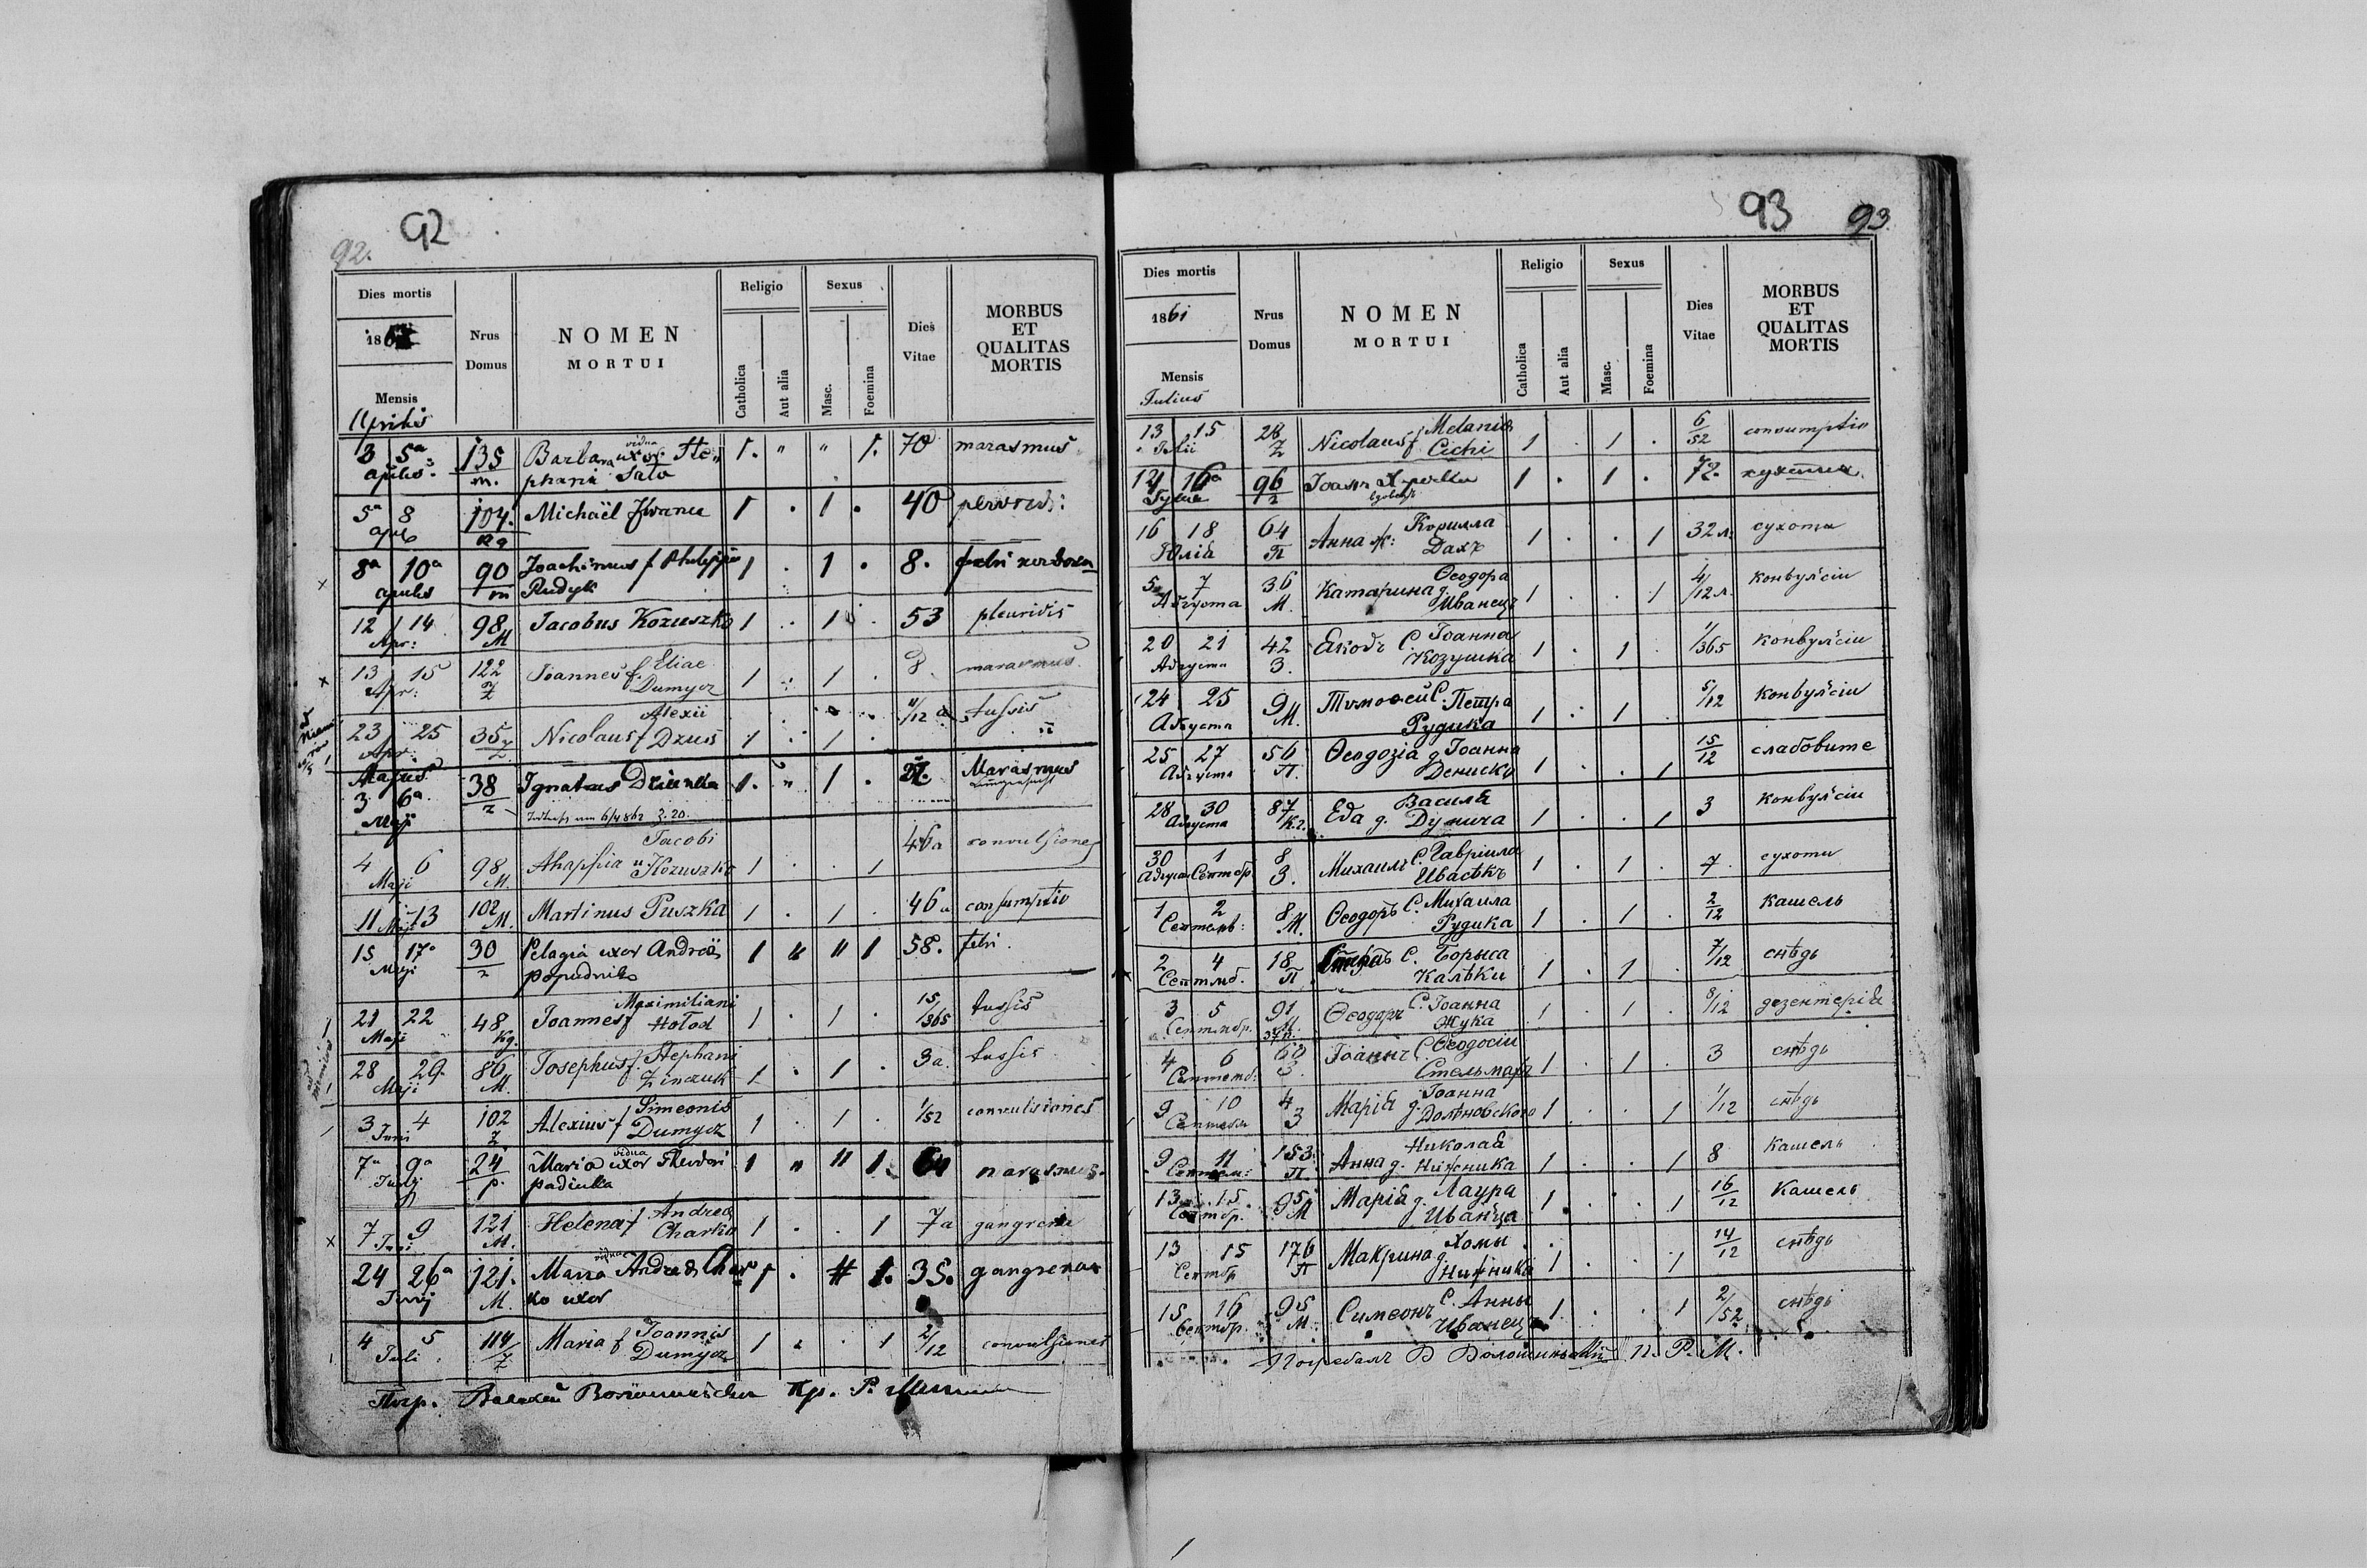 92
92.
Dies mortis
186
Mensis
Aprilis
Nrus
Domus
NOMEN
MORTUI
Religio
Catholica
Aut alia
Sexus
Masc.
Foemina
Dies
Vitae
MORBUS
ET
QUALITAS
MORTIS
3 5a 135 Barbara vidua uxor Ste 1. " " 1. 70 marasmus
aprilis m. phani Sato
5a 8 104. Michaël Iwanec 1 . 1 . 40
8a 10a 90 Joachimus f Philippi 1 . 1 . 8. febri
aprilis m Rudyk
12 14 98 Jacobus Kozuszko 1 . 1 . 53 pleuridis
Apr: M
13 15 122 Joannes f. Eliae 1 . 1 . 8 marasmus
Apr: Z Dumycz
23 25 35 Nicolaus f Alexii 1 . 1 . 11/12 a tussis
Apr: Z Dzus
Majus
3 6a 38 Ignatius 1. " 1 . Marasmus
Maji 2
4 6 98 Ahaffia Jacobi Kozuszko 1 . . 1 46a convulsiones
Maji M.
11 Maji 13 102 Martinus Puszka 1 . 1 . 46a consumptio
M.
15 17a 30 Pelagia uxor Andreä 1 " " 1 58. febri.
Maji 2 popudnik
21 22 48 Joannes f Maximiliani 1 . 1 . 15/365 tussis
Maji Kg. Hołod
28 29. 86 Josephus f. Stephani 1 . 1 . 3a. tussis
Maji M. Zinczuk
3 4 102 Alexius f Simeonis 1 . 1 . 1/52 convulsiones
Juni Z Dumycz
7a 9a 24 Maria vidua uxor Theodori 1 " " 1. 64 marasmus.
Junij p. padiuka
7 9 121 Helena f Andrea 1 . . 1 7a gangrena
Juni M. Charko
24 26a 121. Maria vidua Andreä Char 1 . 1. 35. gangrena
Junij M. ko uxor
4 5 114 Maria f Joannis 1 . . 1 2/12 convulsiones
Juli Z Dumycz
93
93
Dies mortis
1861
Mensis
Julius
Nrus
Domus
NOMEN
MORTUI
Religio
Catholica
Aut alia
Sexus
Masc.
Foemina
Dies
Vitae
MORBUS
ET
QUALITAS
MORTIS
13 15 28 Nicolaus f Melania 1 . 1 . 6/52 consumptio
Julii Z Cichi
16a 96 1 . 1 . 72.
16 18 64 Анна ж: Корилла 1 . . 1 32 л. сухоти
Юлія П Дахъ
5 7 36 Катарина д. Ѳеодора 1 . . 1 4/12 л. конвульсіи
Августа М. Иванецъ
20 21 42 Якобъ С. Іоанна 1 . 1 . 1/365 конвульсіи
Августа З. Козушка
24 25 9 Тимоѳей С. Петра 1 . 1 . 5/12 конвульсіи
Августа М. Рудика
25 27 56 Ѳеодозіа д. Іоанна 1 . . 1 15/12 слабовите
Августа П. Дениско
28 30 87 Ева д. Василя 1 . . 1 3 конвульсіи
Августа Кг. Думича
30 1 8 Михаилъ С. Гавріила 1 . 1 . 7. сухоти
Августа Септбр З. Ивасѣкъ
1 2 8 Ѳеодоръ С. Михаила 1 . 1 . 2/12 кашель
Септемб: М. Рудика
2 4 18 С. Борыса 1 . 1 . 7/12 снѣдь
Септмб. П Калѣки
3 5 91 Ѳеодоръ С. Іоанна 1 . 1 . 8/12 дезентеріа
Септмбр. М. Жука
4 6 60 Іоаннъ С. Ѳеодосіи 1 . 1 . 3 снѣдь
Септемб. З. Стельмаха
9 10 4 Маріа д. Іоанна 1 . . 1 1/12 снѣдь
Септем З
9 11 153 Анна д. Николая 1 . . 1 8 кашель
Септем: П. Нижника
13 15 95 Маріа д. Лаура 1 . . 1 16/12 Кашель
Септбр. М Иванца
13 15 176 Макрина д. Хомы 1 . . 1 14/12 снѣдь
Септбр П Нижника
15 16 95 Симеонъ С. Анны 1 . . 1 2/52 снѣдь
Септбр. М. Иванецъ